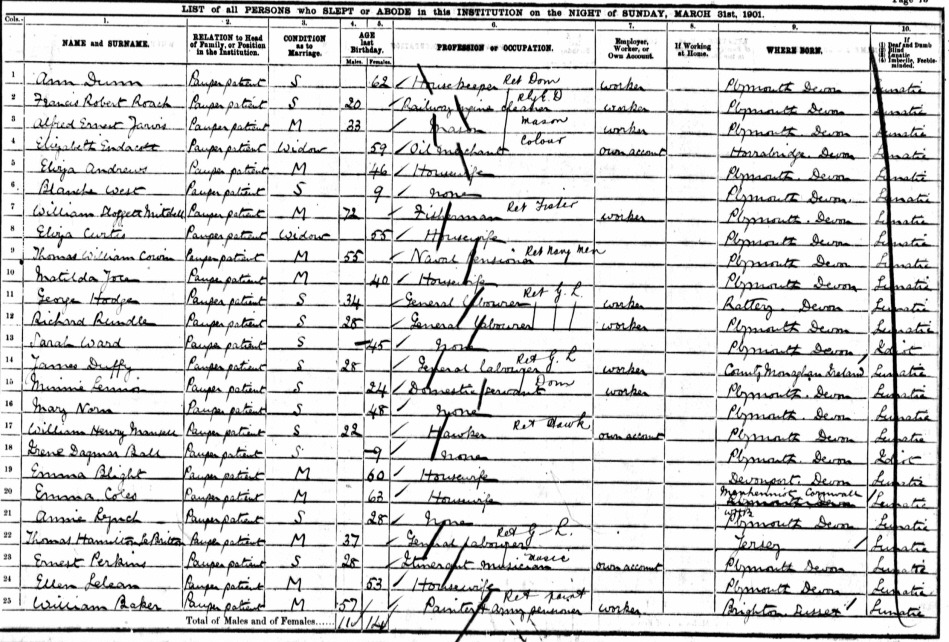 Page 70
LIST of all PERSONS who SLEPT or ABODE in this INSTITUTION on the NIGHT of SUNDAY, MARCH 31st, 1901.
Cols.— 1. 2. 3. 4. 5. 6. 7. 8. 9. 10.
NAME and SURNAME. RELATION to Head of Family, or Position in the Institution. CONDITION as to Marriage. AGE last Birthday. Males. Females. PROFESSION or OCCUPATION. Employer, Worker, or Own Account. If Working at Home. WHERE BORN. If (1) Deaf and Dumb (2) Blind (3) Lunatic (4) Imbecile, Feeble-minded.
1 Ann Dunn Pauper patient S 62 Housekeeper Ret Dom worker Plymouth Devon Lunatic
2 Francis Robert Roach Pauper patient S 20 Railway engine cleaner worker Plymouth Devon Lunatic
3 Alfred Ernest Jarvis Pauper patient M 33 Mason Mason worker Plymouth Devon Lunatic
4 Elizabeth Endacott Pauper patient Widow 59 Oil merchant Colour own account Horrabridge Devon Lunatic
5 Eliza Andrews Pauper patient M 46 Housewife Plymouth Devon Lunatic
6 Blanche West Pauper patient S 9 None Plymouth Devon Lunatic
7 William Mitchell Pauper patient M 72 Fisherman Ret Fisher worker Plymouth Devon Lunatic
8 Eliza Curtis Pauper patient Widow 55 Housewife Plymouth Devon Lunatic
9 Thomas William Pauper patient M 55 Naval Pensioner Ret Navy Men Plymouth Devon Lunatic
10 Matilda Pauper patient M 40 Housewife Plymouth Devon Lunatic
11 George Hodge Pauper patient S 34 General labourer Ret G. L. worker Rattery Devon Lunatic
12 Richard Rundle Pauper patient S 28 General labourer worker Plymouth Devon Lunatic
13 Sarah Ward Pauper patient S 45 None Plymouth Devon Idiot
14 James Duffy Pauper patient S 28 General labourer Ret G. L worker County Monaghan Ireland Lunatic
15 Minnie Pauper patient S 24 Domestic servant Dom worker Plymouth Devon Lunatic
16 Mary Pauper patient S 48 None Plymouth Devon Lunatic
17 William Henry Pauper patient S 22 Hawker Ret Hawk own account Plymouth Devon Lunatic
18 Irene Dagmar Ball Pauper patient S 9 None Plymouth Devon Idiot
19 Emma Blight Pauper patient M 60 Housewife Devonport Devon Lunatic
20 Emma Coles Pauper patient M 63 Housewife Menheniot Cornwall Lunatic
21 Annie Lynch Pauper patient S 28 None Plymouth Devon Lunatic
22 Thomas Hamilton Le Britton Pauper patient M 37 General labourer Ret G - L. Jersey Lunatic
23 Ernest Perkins Pauper patient S 28 Itinerant musician music own account Plymouth Devon Lunatic
24 Ellen Lelean Pauper patient M 53 Housewife Plymouth Devon Lunatic
25 William Baker Pauper patient M 57 Painter Army pensioner Ret worker Brighton Sussex Lunatic
Total of Males and of Females...... 11 14